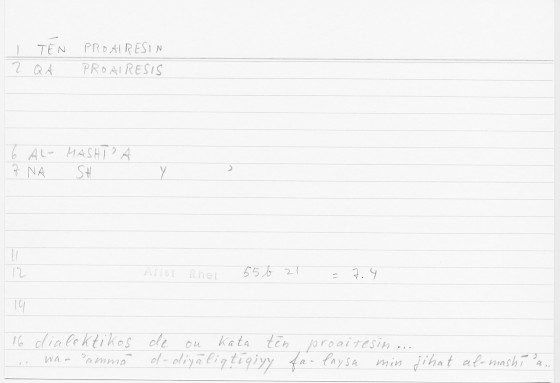 1 TĒN PROAIRESIN
2 QA PROAIRESIS
6 AL-MASHĪʾA
7 NA SH Y ʾ
11
12 Arist Rhet 55b 21 = 7.4
14
16 dialektikos de ou kata tēn proairesin...
.. wa-ʾammā d-diyāliqṭīqiyy fa-laysa min jihat al-mashīʾa..